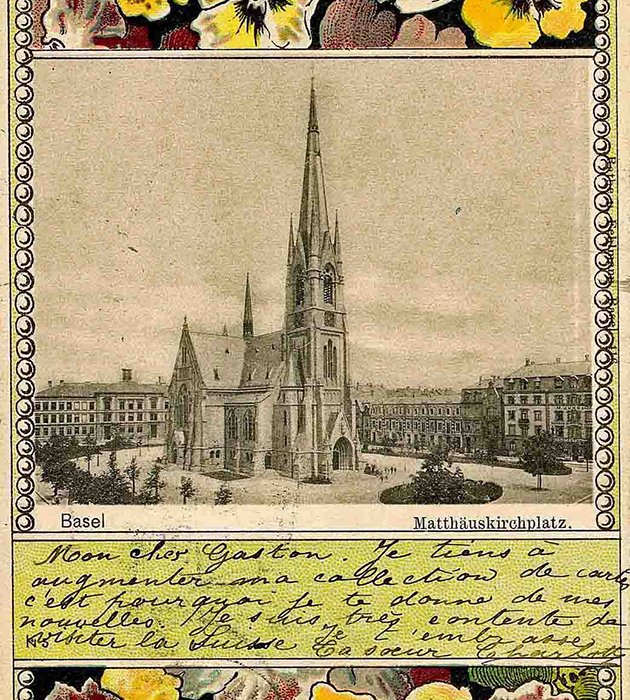 Basel
Matthäuskirchplatz.
Mon cher Gaston. Je tiens à
augmenter ma collection de cartes
c'est pourquoi je te donne de mes
nouvelles. Je suis très contente de
visiter la Suisse Je t'embrasse
Ta sœur Charlotte